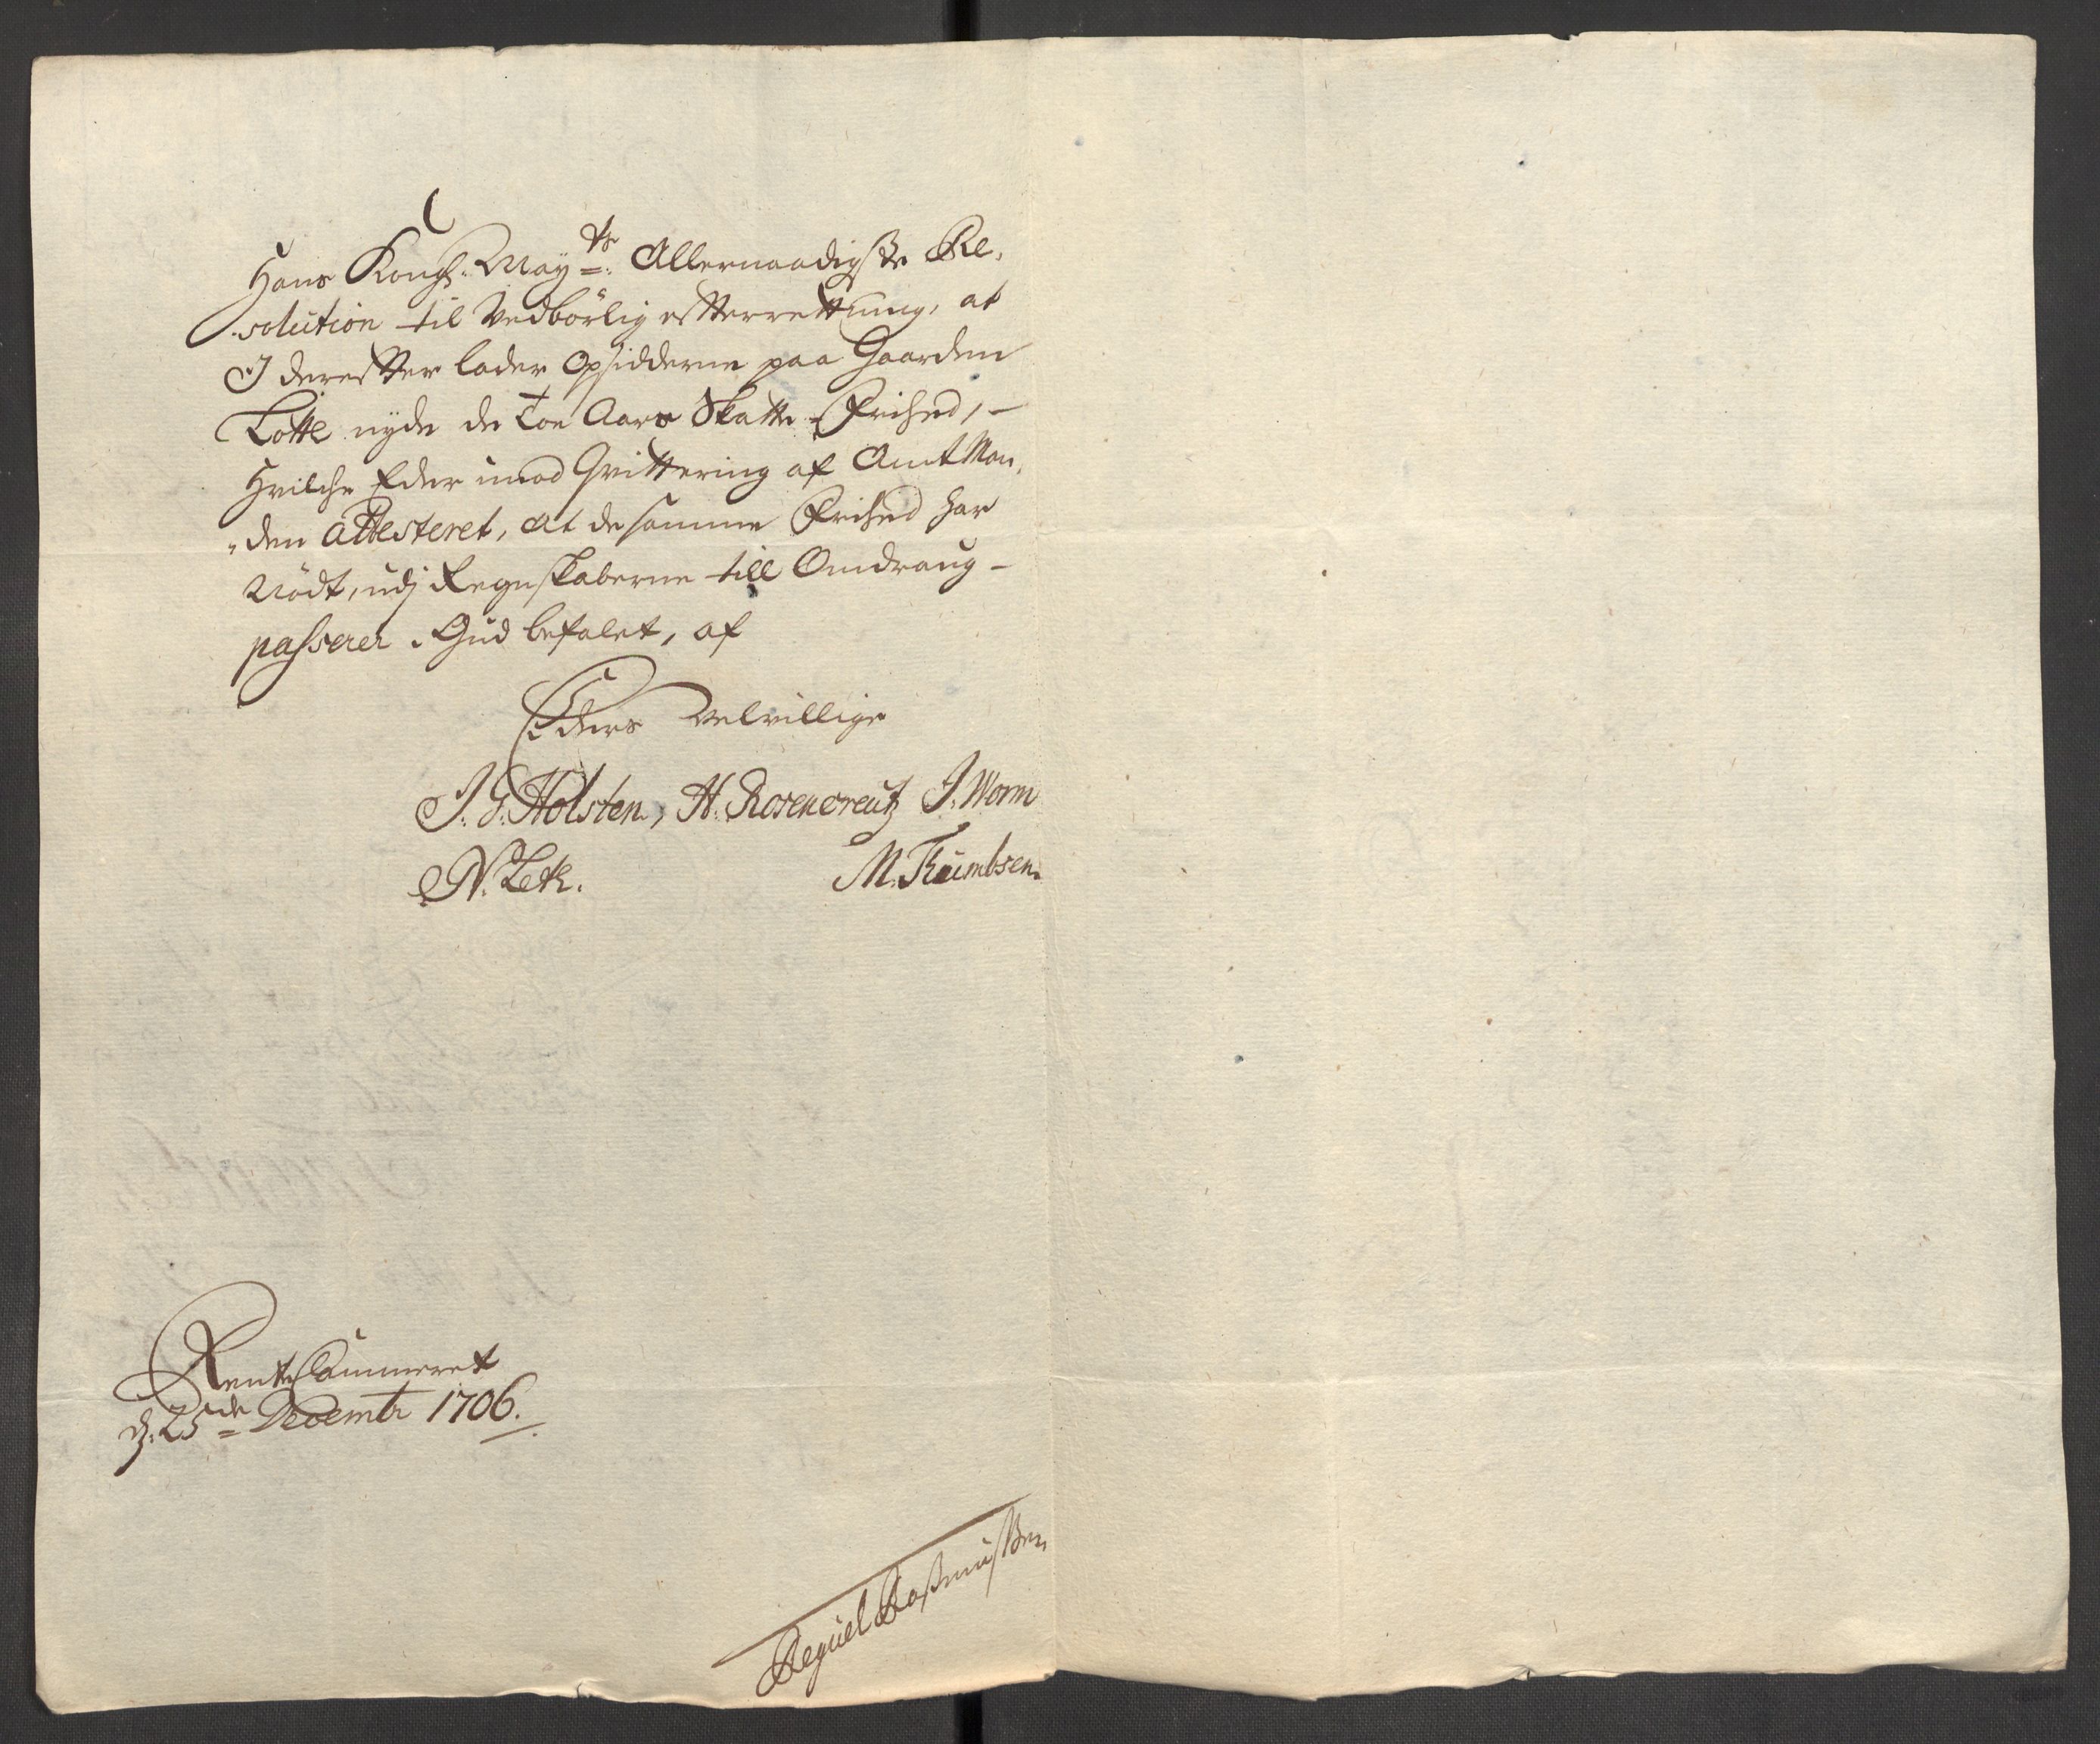 Hans Kongl: May.ts: Allernaadigste Re,
solution til Vedbörlig efterrettning, at
I derefter lader Opsidderne paa Gaarden
Lotte nyde de Toe Aars Skatte-Frihed, -
Hvilche Eder imod Qvittering af AmtMan,
"den Attesteret, at de samme Frihed har
Nödt, udj Regnskaberne till Omdraug -
passerer. Gud befalet, af
Eders Velvillige
J. G. Holsten, H. Rosencreutz J. Worm
N. Leth. M. Thumbsen.
RenteCammeret
d: 25de Decembr 1706.
Reguel Rasmussen